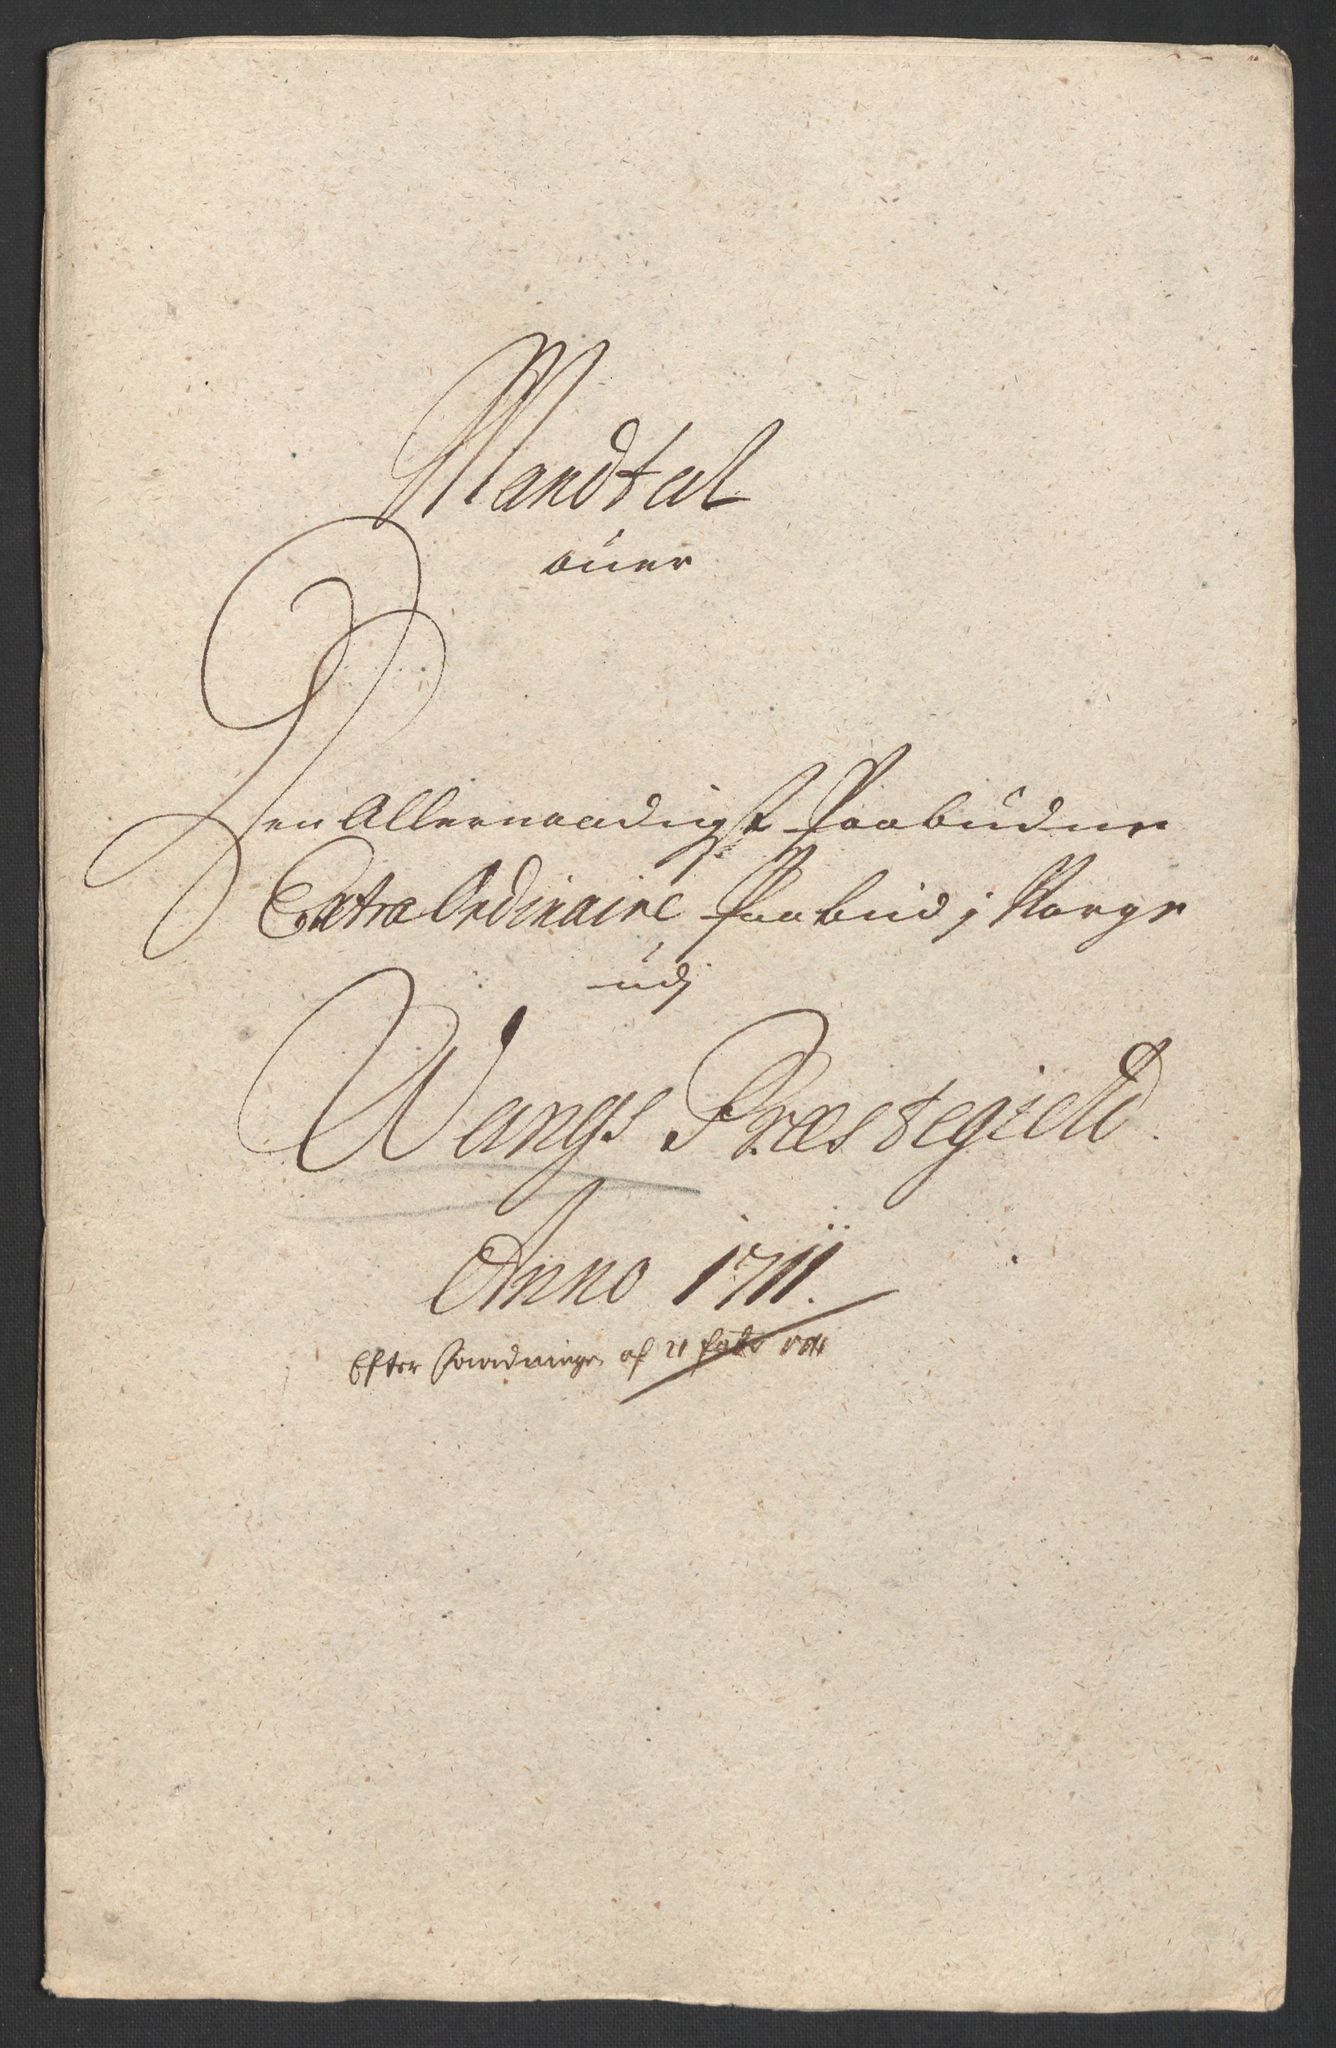 Mandtal
over
Den Allernaadigst Paabudne
Extra Ordinaire Paabud i Norge
udj
Wangs Præstegield.
Anno 1711.
Efter forordningen af 21 febr 1711